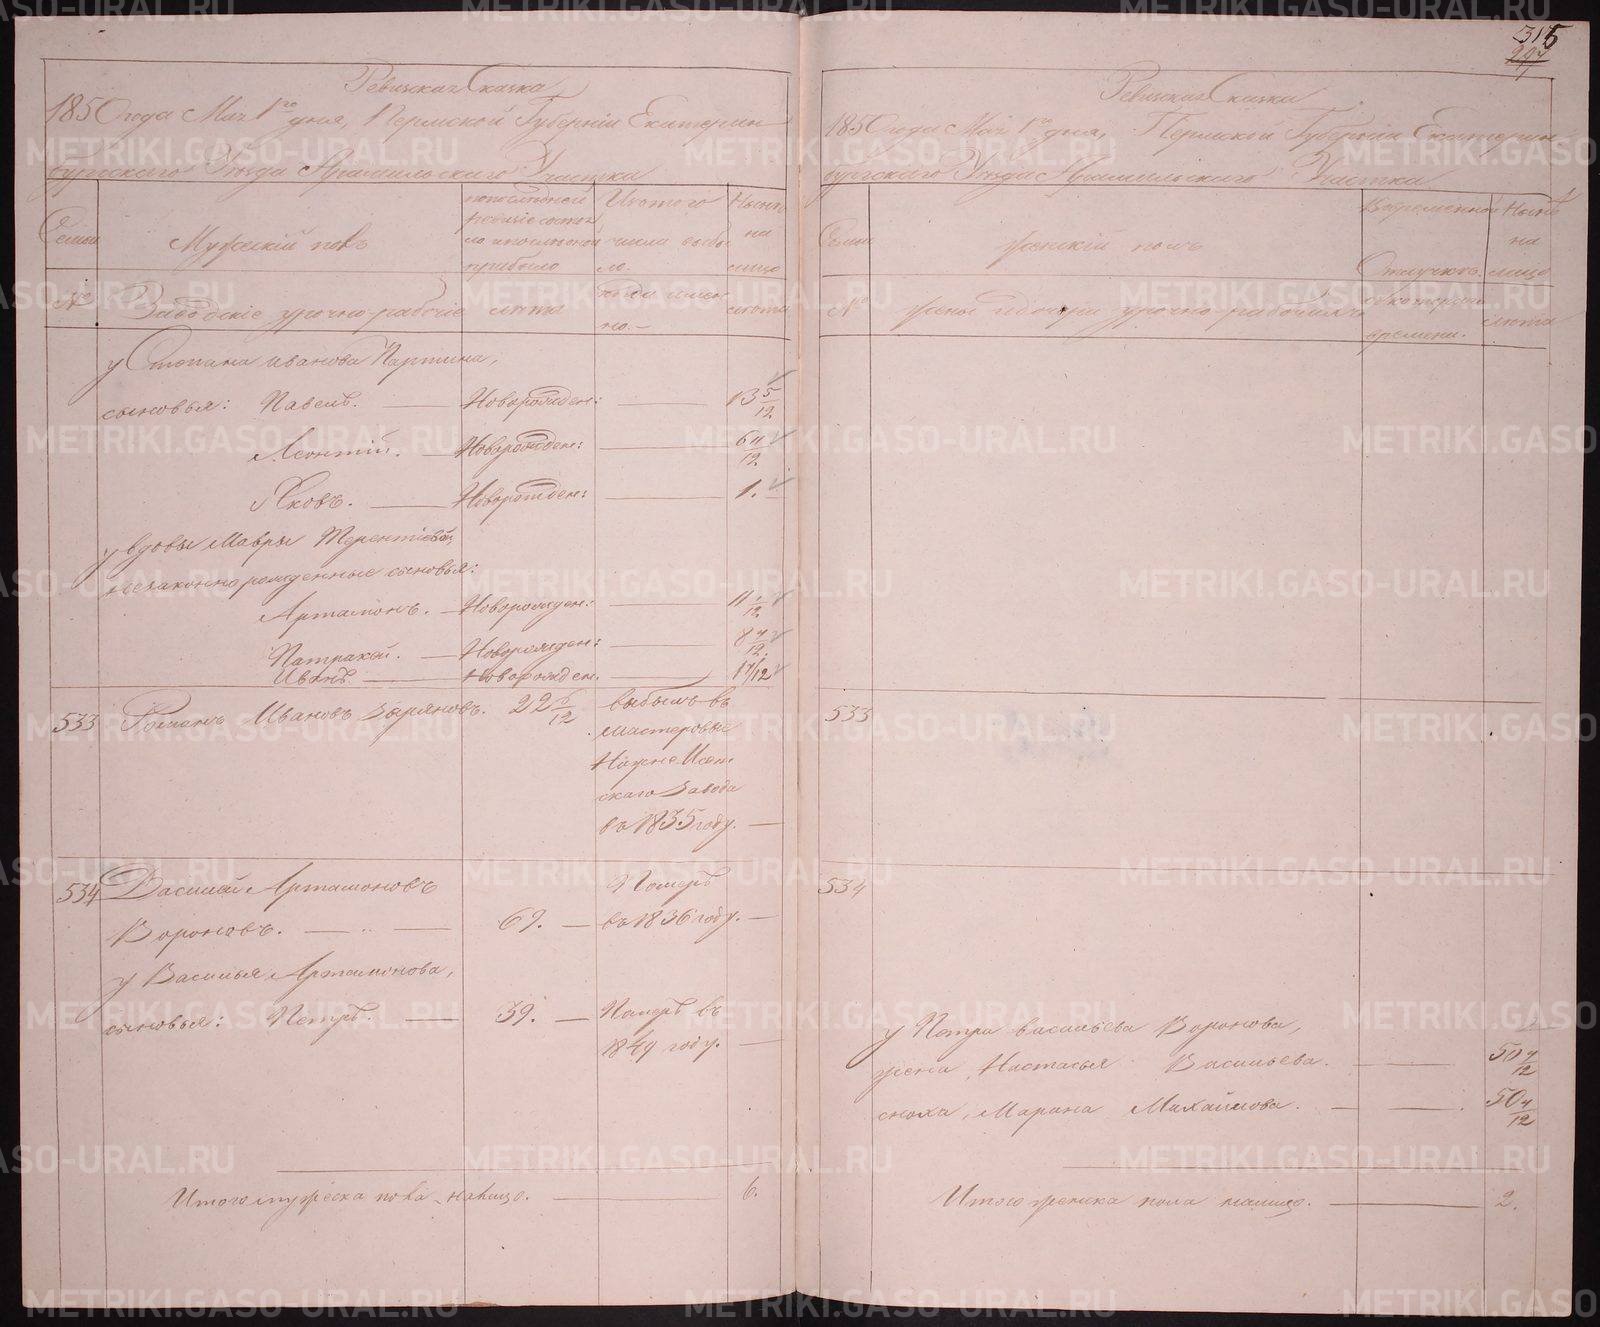 315
297
Ревизская Сказка
1850 года Мая 1го дня, Пермской Губерніи Екатерин
бургского Уезда Арамильского Участка
Семьи
Мужескій полъ
по последней
ревизіи состоя
ло и после оной
прибыло
Изъ того
числа выбы
ло.
Ныне
на
лицо
№
Заводскіе урочно-рабочіе
лета
когда имен
но.-
лета
у Степана Иванова Партина,
сыновья: Павелъ. Новорожден: 13 5/12
Леонтій. Новорожден: 6 11/12
Яковъ. Новорожден: 1.
у вдовы Мавры Терентіевой,
незаконно рожденные сыновья:
Артамонъ. Новорожден: 11 1/12
Патракей. Новорожден: 8 4/12
Иванъ. Новорожден. 1 7/12
533 Романъ Ивановъ Зыряновъ. 22 5/12 выбылъ въ
мастеровые
Нижне-Исет
скаго Завода
въ 1835 году.
534 Василій Артамоновъ
Вороновъ. 69. Померъ
въ 1836 году.
у Василья Артамонова,
сыновья: Петръ. 39. Померъ въ
1849 году.
Итого мужеска пола налицо. 6.
Ревизская Сказка
1850 года Мая 1го дня, Пермской Губерніи Екатерин
бургского Уезда Арамильского Участка
Семьи
женскій полъ
Во временной
отлучке.
Ныне
на
лицо
№
съ котораго
времени.
лета
533
534
у Петра Васильева Воронова,
жена, Настасья Васильева. 50 4/12
сноха, Марина Михайлова. 50 4/12
Итого женска пола налицо. 2.
METRIKI.GASO-URAL.RU